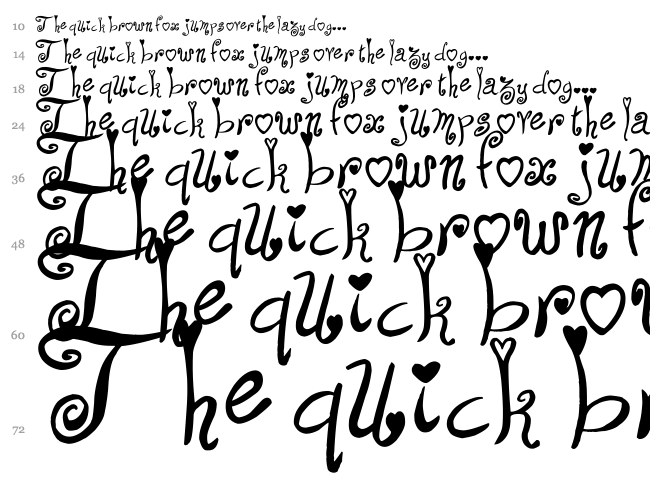 10 The quick brown fox jumps over the lazy dog...
14 The quick brown fox jumps over the lazy dog...
18 The quick brown fox jumps over the lazy dog...
24 The quick brown fox jumps over the la
36 The quick brown fox jum
48 The quick brown f
60 The quick brow
72 The quick br